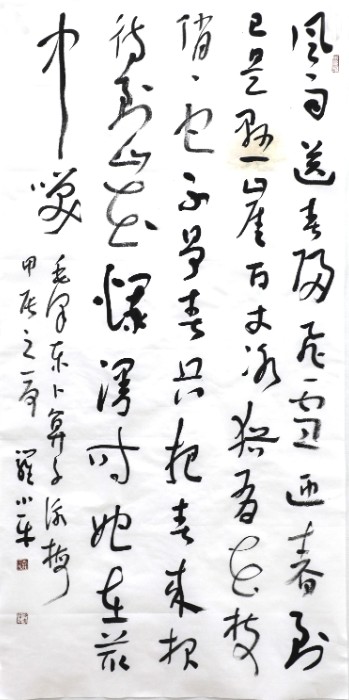 风雨送春归飞雪迎春到
已是悬崖百丈冰猶有花枝
俏〻也不争春只把春来报
待到山花爛漫时她在丛
中笑
毛泽东卜算子咏梅
甲辰之夏 羅小平